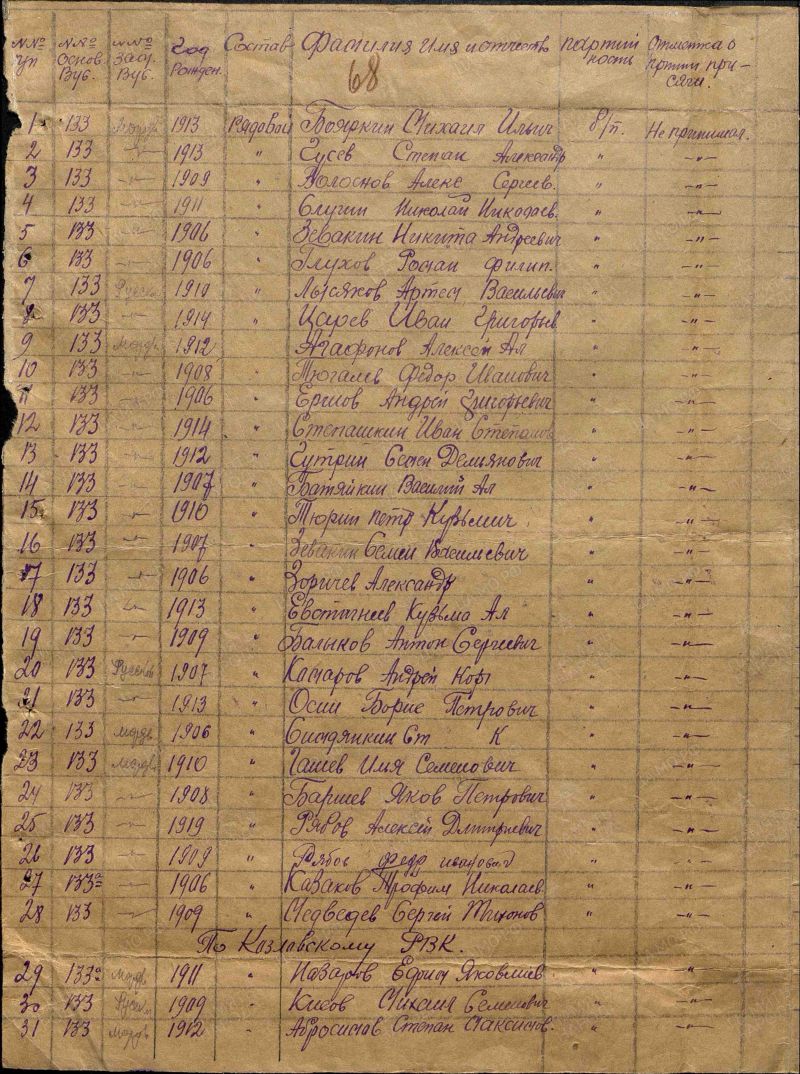 N№ п/п N№ основ Вус. N№ зап. Вус. Год Рожден. Состав Фамилия имя и отчество партийность Отметка о прти присяги.
68
1 133 Мордв 1913 Рядовой Бояркин Михаил Ильич б/п. Не принимал.
2 133 -"- 1913 " Гусев Степан Александр " -"-
3 133 -"- 1909 " Волоснов Алекс Сергеев. " -"-
4 133 -"- 1911 " Слугин Николай Николаев. " -"-
5 133 -"- 1906 " Зевакин Никита Андреевич " -"-
6 133 -"- 1906 " Глухов Роман Филип. " -"-
7 133 Русск 1910 " Лысяков Артем Васильевич " -"-
8 133 -"- 1914 " Царев Иван Григорьев " -"-
9 133 Мордв 1912 " Агафонов Алексей Ал " -"-
10 133 -"- 1908 " Тюгаев Федор Иванович " -"-
11 133 -"- 1906 " Ершов Андрей Григорьевич " -"-
12 133 -"- 1914 " Степашкин Иван Степанов " -"-
13 133 -"- 1912 " Семен Демиянович " -"-
14 133 -"- 1907 " Батяйкин Василий Ал " -"-
15 133 -"- 1910 " Тюрин петр Кузьмич " -"-
16 133 -"- 1907 " Зевакин Семен Василиевич " -"-
17 133 -"- 1906 " Зоричев Александр " -"-
18 133 -"- 1913 " Евстигнеев Кузьма Ал " -"-
19 133 -"- 1909 " Балыков Антон Сергеевич " -"-
20 133 Русский 1907 " Камаров Андрей " -"-
21 133 -"- 1913 " Осин Борис Петрович " -"-
22 133 мордв 1906 " Ст К " -"-
23 133 мордв 1910 " Гашев Илья Семенович " -"-
24 133 -"- 1908 " Баришев Яков Петрович " -"-
25 133 -"- 1919 " Рябов Алексей Дмитриевич " -"-
26 133 -"- 1909 " Рябов федр иванович " "
27 133а -"- 1906 " Казаков Трофим Николаев. " -"-
28 133 -"- 1909 " Медведев Сергей Тихонов " -"-
По Козловскому РВК.
29 133а Мордв 1911 " Назаров Ефим Яковлиев " -"-
30 133 Русск 1909 " Кисов Михаил Семенович " -"-
31 133 мордв 1912 " Абросимов Степан Максимов. " -"-